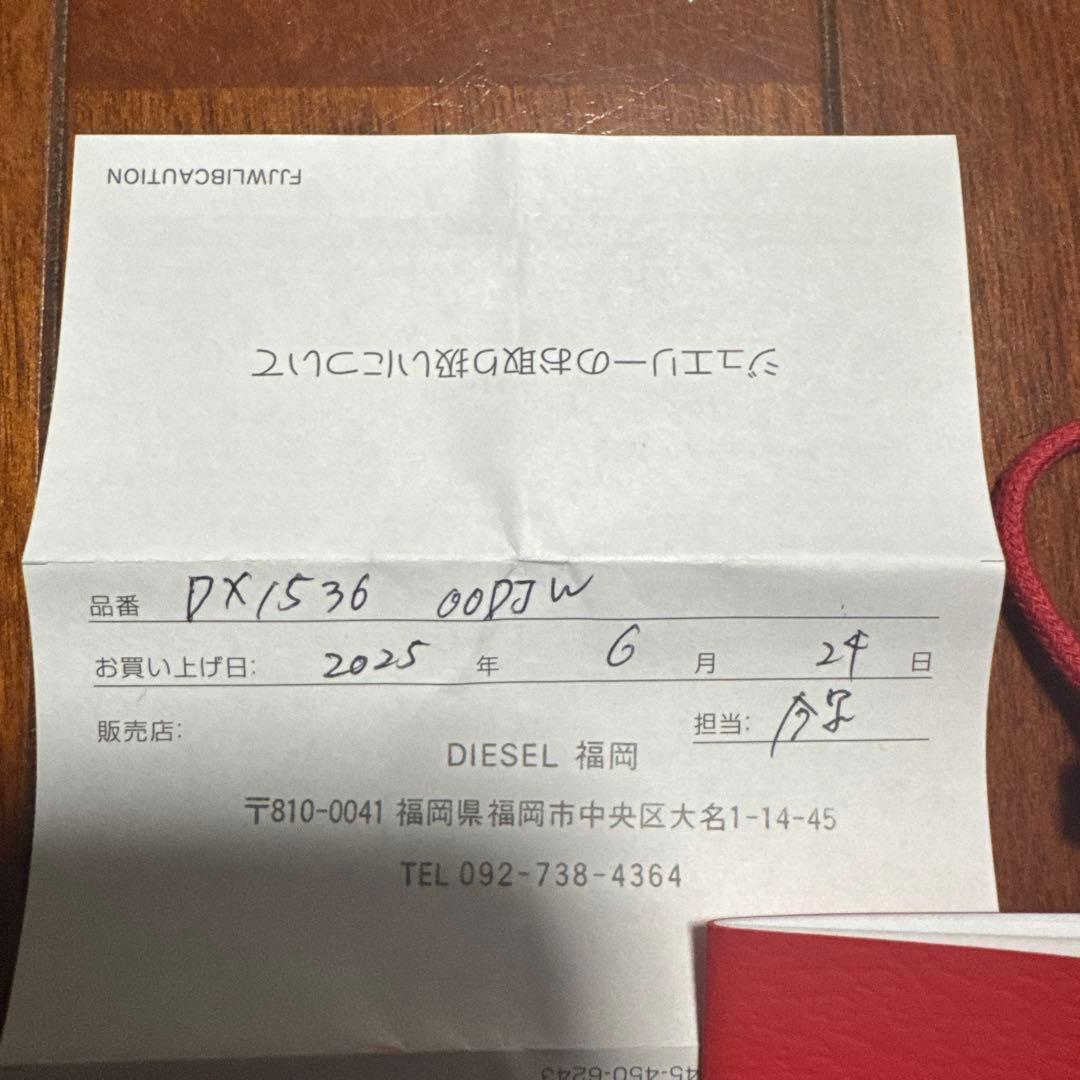 FJJWLIBCAUTION
ジュエリーのお取り扱いについて
品番 DX1536 00DJW
お買い上げ日: 2025 年 6 月 24 日
販売店: 担当:
DIESEL 福岡
〒810-0041 福岡県福岡市中央区大名1-14-45
TEL 092-738-4364
45-450-6243